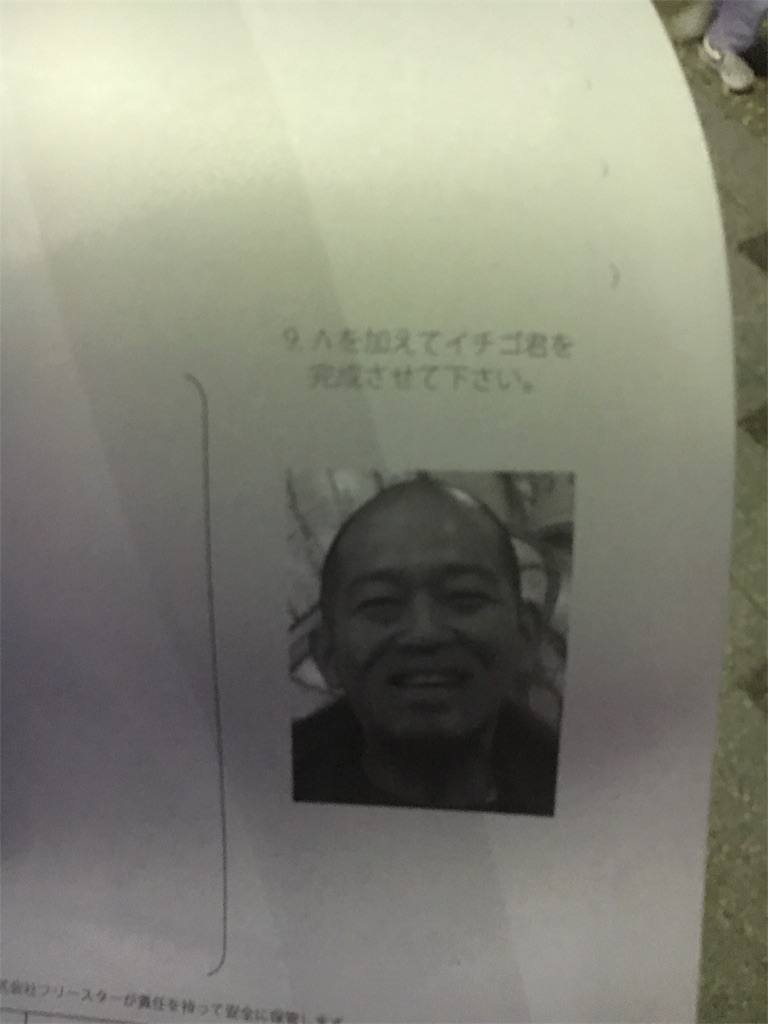 9. 八を加えてイチゴ君を
完成させて下さい。
式会社フリースターが責任を持って安全に保管します